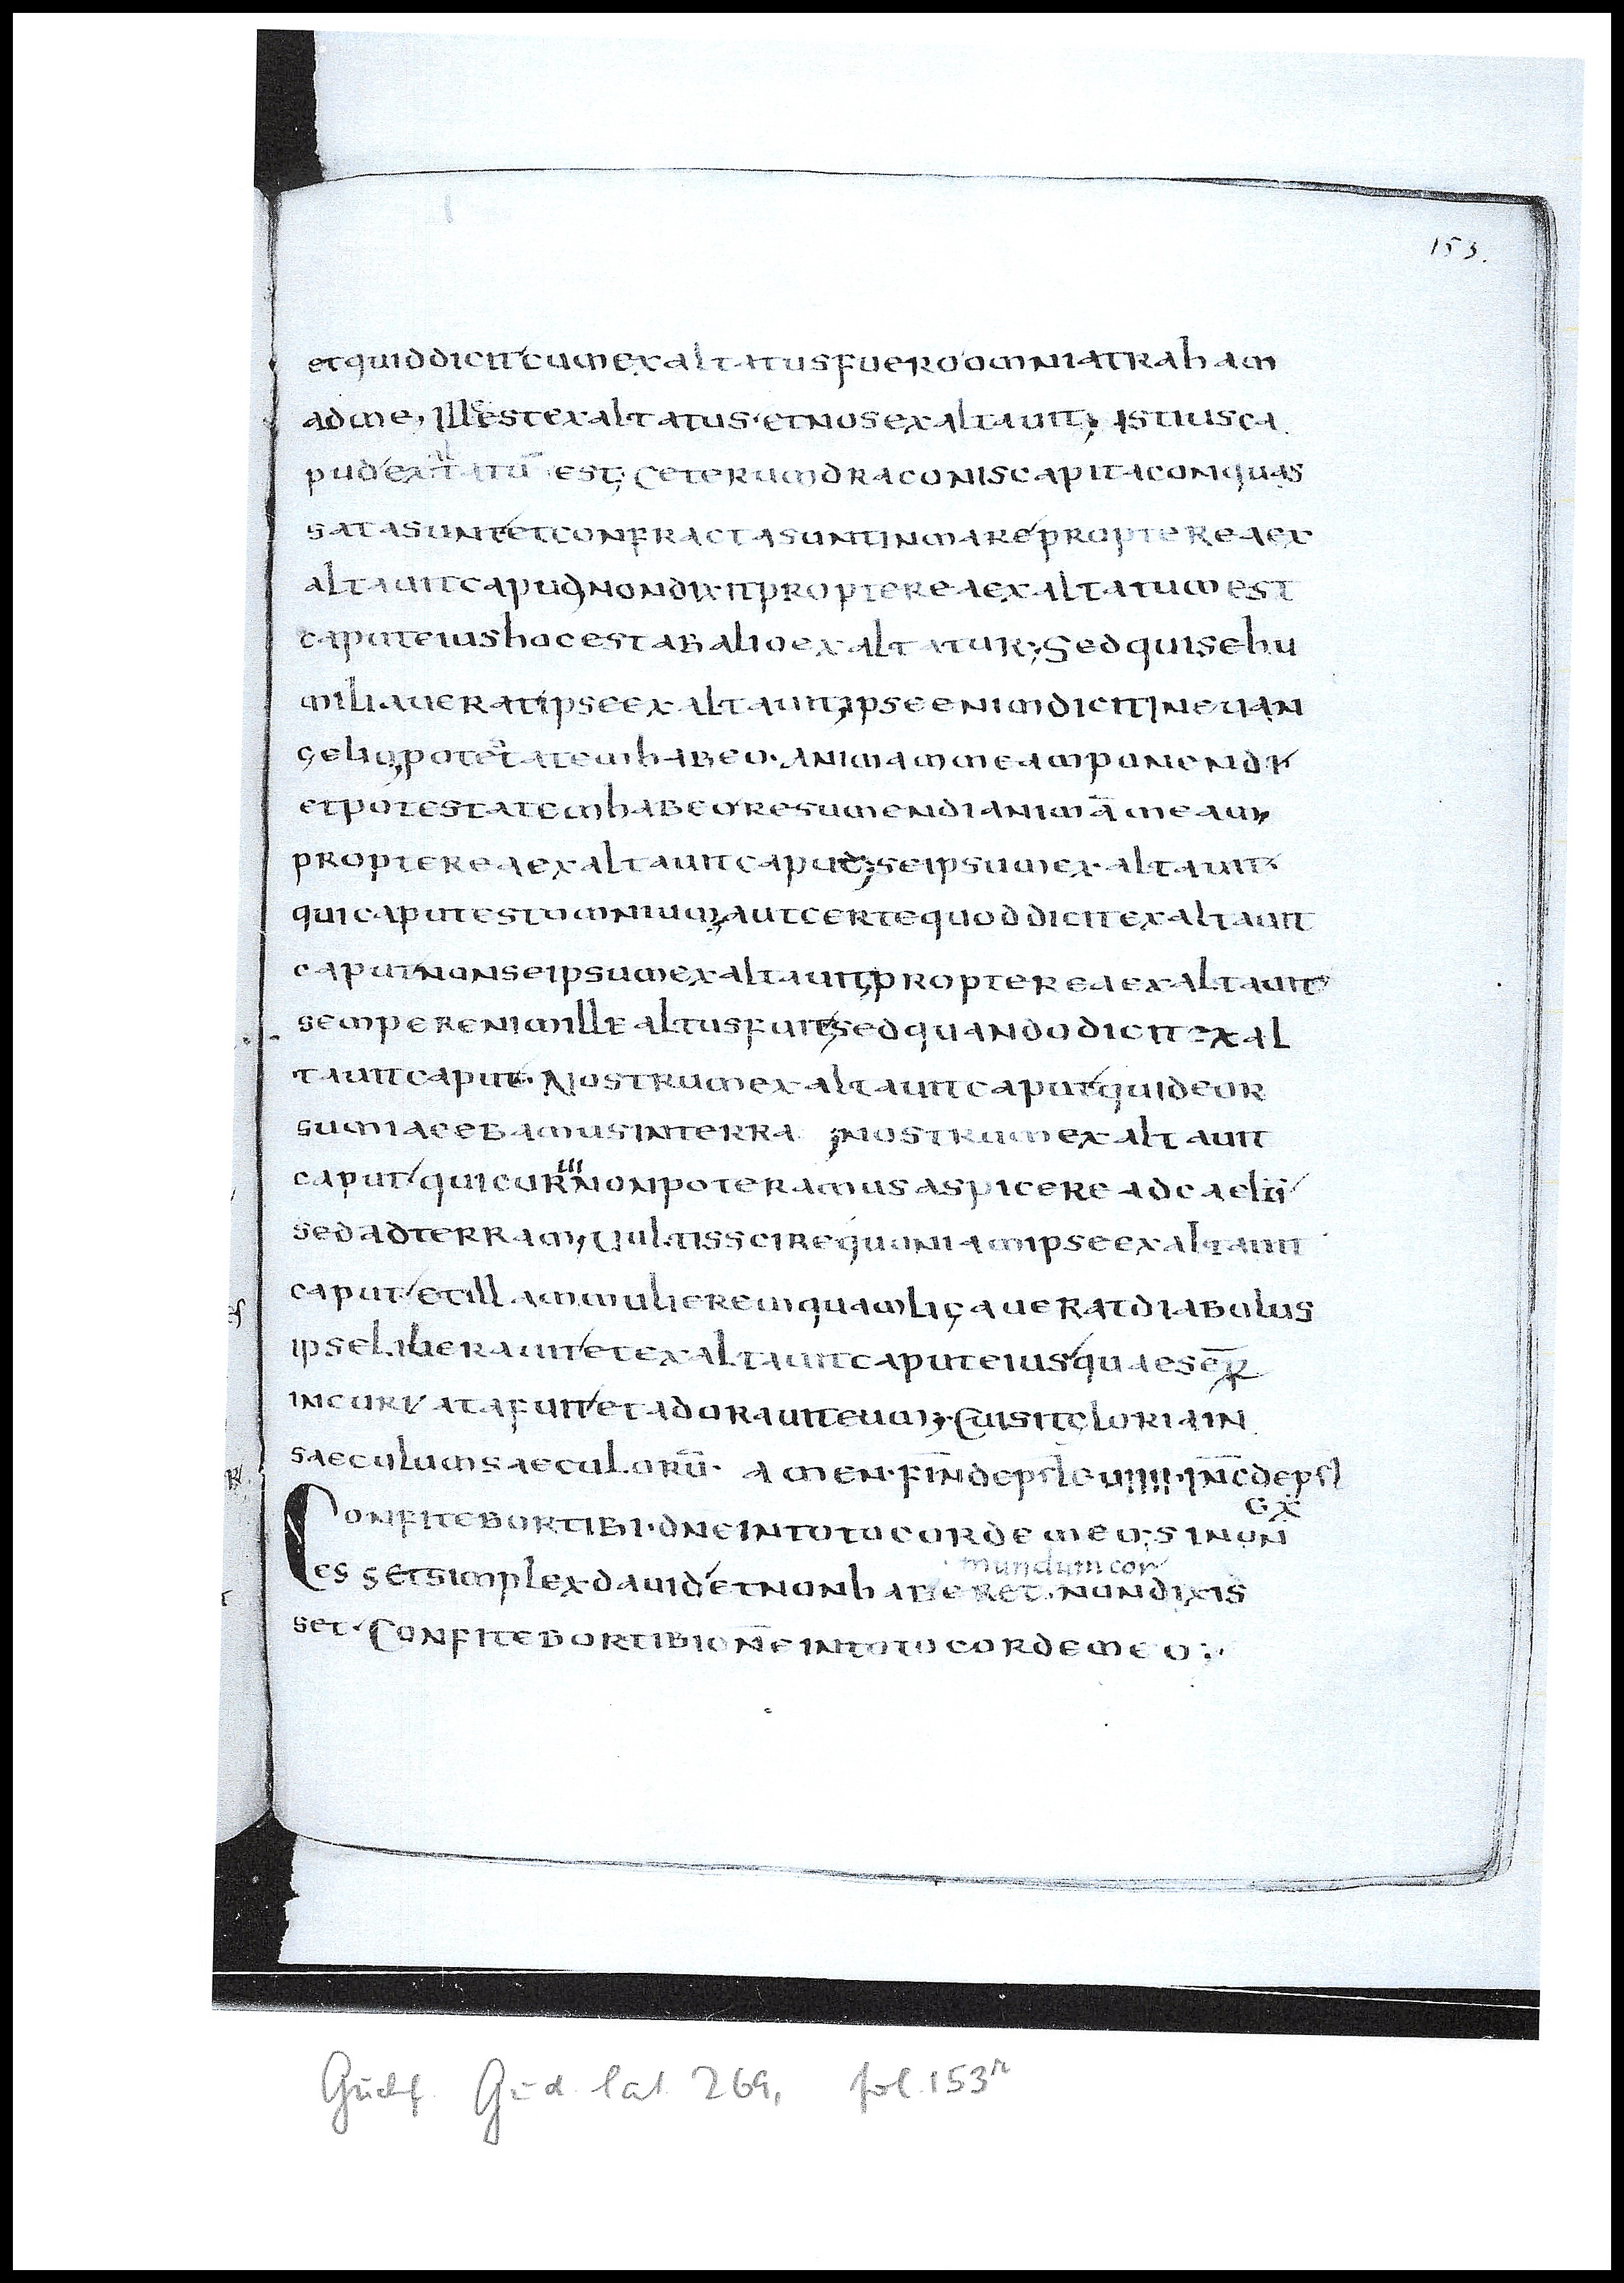 153.
et quid dicit cum exaltatus fuero omnia traham
ad me, Ille est exaltatus· et nos exaltauit; istius ca
pud exaltatū est; Ceterum draconis capita conquas
sata sunt et confracta sunt in mare propterea ex
altauit capud non dixit propterea exaltatum est
caput eius hoc est ab alio exaltatur; Sed qui se hu
miliauerat ipse exaltauit; ipse enim dicit In euan
gelio; potestatem habeo· animam meam ponendi
et potestatem habeo resumendi animā meam;
propterea exaltauit capud; se ipsum exaltauit·
qui caput est omnium; aut certe quod dicit exaltauit
caput non se ipsum exaltauit; propterea exaltauit
semper enim ille altus fuit; sed quando dicit exal
tauit caput· Nostrum exaltauit caput qui deor
sum iacebamus in terra ; nostrum exaltauit
caput qui curui non poteramus aspicere ad caelū
sed ad terram; Uultis scire quoniam ipse exaltauit
caput et illam mulierem quam ligauerat diabolus
ipse liberauit et exaltauit caput eius quae semp̄
incuruata fuit et adorauit eum; Cui sit gloria in
saeculum saeculorū· amen· fin̄ de psl c uiiii· in̄c de psl
cx
Confitebor tibi· dne in toto corde meo; si non
mundum cor
esset simplex dauid et non haberet· non dixis
set· Confitebor tibi dn̄e in toto corde meo:·
Guelf. Gud. lat. 269, fol. 153r